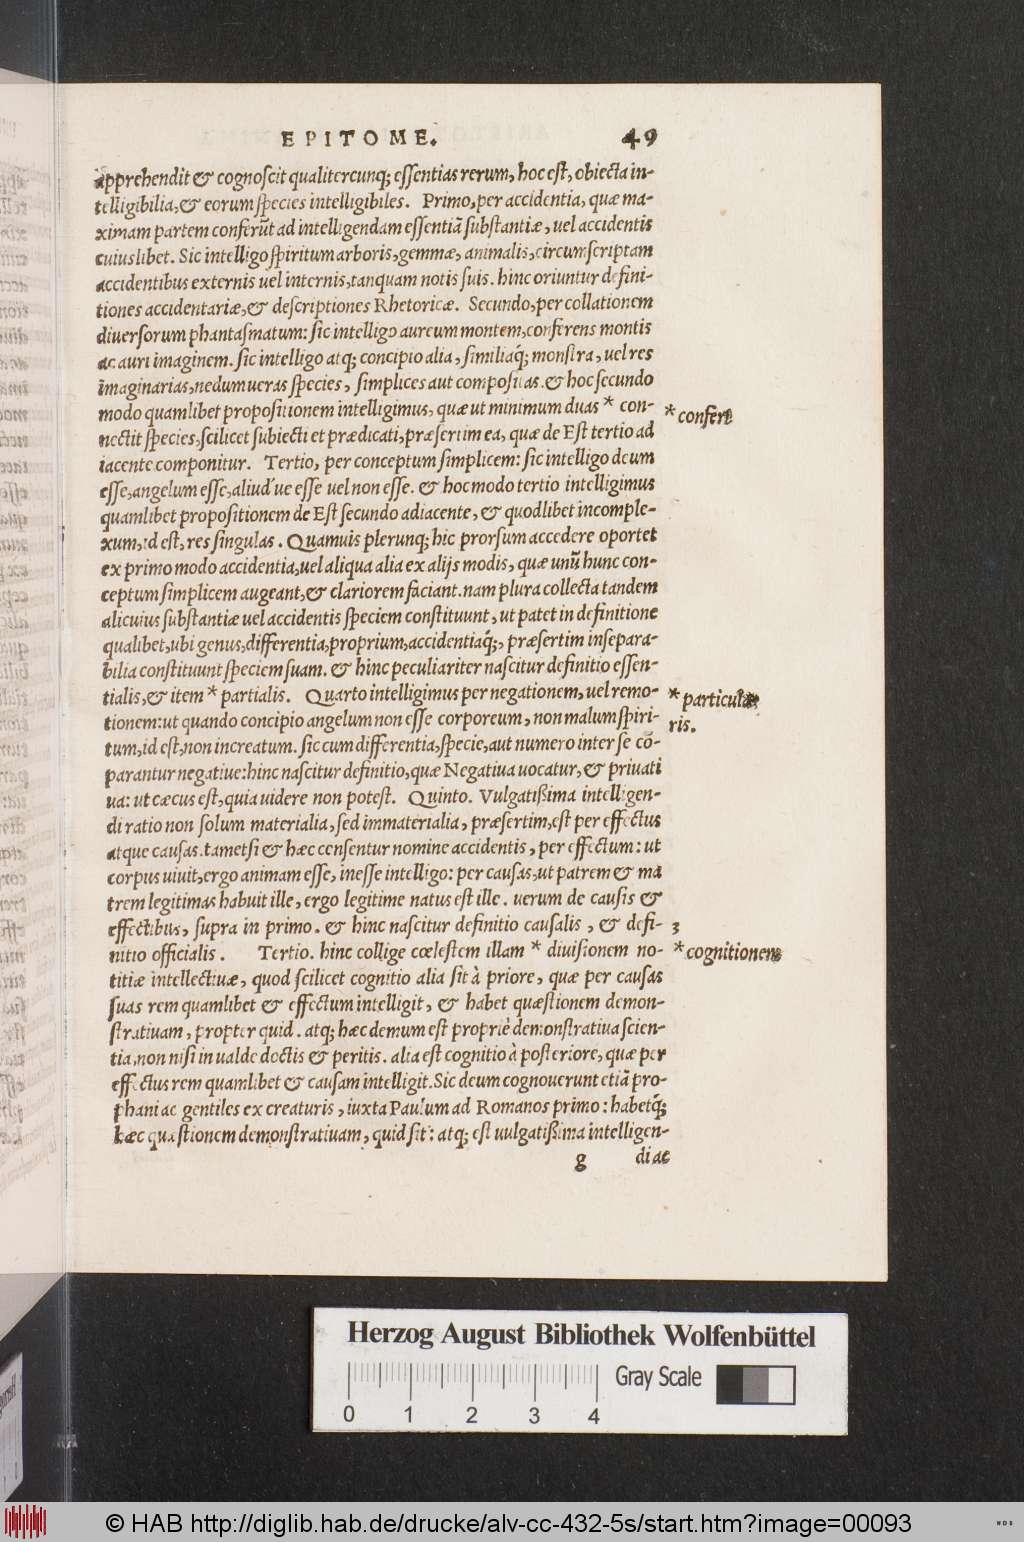 EPITOME. 49
apprehendit & cognoscit qualitercunq; essentias rerum, hoc est, obiecta in-
telligibilia, & eorum species intelligibiles. Primo, per accidentia, quæ ma-
ximam partem conferūt ad intelligendam essentiā substantiæ, uel accidentis
cuiuslibet. Sic intelligo spiritum arboris, gemmæ, animalis, circumscriptam
accidentibus externis uel internis, tanquam notis suis. hinc oriuntur defini-
tiones accidentariæ, & descriptiones Rhetoricæ. Secundo, per collationem
diuersorum phantasmatum: sic intelligo aureum montem, conferens montis
ac auri imaginem. sic intelligo atq; concipio alia, similiaq́; monstra, uel res
imaginarias, nedum ueras species, simplices aut compositas. & hoc secundo
modo quamlibet propositionem intelligimus, quæ ut minimum duas * con-
* confert
nectit species, scilicet subiecti et prædicati, præsertim ea, quæ de Est tertio ad
iacente componitur. Tertio, per conceptum simplicem: sic intelligo deum
esse, angelum esse, aliud'ue esse uel non esse. & hoc modo tertio intelligimus
quamlibet propositionem de Est secundo adiacente, & quodlibet incomple-
xum, id est, res singulas. Quamuis plerunq; hic prorsum accedere oportet
ex primo modo accidentia, uel aliqua alia ex alijs modis, quæ unū hunc con-
ceptum simplicem augeant, & clariorem faciant. nam plura collecta tandem
alicuius substantiæ uel accidentis speciem constituunt, ut patet in definitione
qualibet, ubi genus, differentia, proprium, accidentiaq́;, præsertim insepara-
bilia constituunt speciem suam. & hinc peculiariter nascitur definitio essen-
tialis, & item * partialis. Quarto intelligimus per negationem, uel remo-
* particula
ris.
tionem: ut quando concipio angelum non esse corporeum, non malum spiri-
tum, id est, non increatum. sic cum differentia, specie, aut numero inter se cō-
parantur negatiue: hinc nascitur definitio, quæ Negatiua uocatur, & priuati
ua: ut cæcus est, quia uidere non potest. Quinto. Vulgatißima intelligen-
di ratio non solum materialia, sed immaterialia, præsertim, est per effectus
atque causas. tametsi & hæc censentur nomine accidentis, per effectum: ut
corpus uiuit, ergo animam esse, inesse intelligo: per causas, ut patrem & ma
trem legitimas habuit ille, ergo legitime natus est ille. uerum de causis &
effectibus, supra in primo. & hinc nascitur definitio causalis, & defi-
3
nitio officialis. Tertio. hinc collige cœlestem illam * diuisionem no-
* cognitionem
titiæ intellectiuæ, quod scilicet cognitio alia sit à priore, quæ per causas
suas rem quamlibet & effectum intelligit, & habet quæstionem demon-
stratiuam, propter quid. atq; hæc demum est propriè demonstratiua scien-
tia, non nisi in ualde doctis & peritis. alia est cognitio à posteriore, quæ per
effectus rem quamlibet & causam intelligit. Sic deum cognouerunt etiā pro-
phani ac gentiles ex creaturis, iuxta Paulum ad Romanos primo: habetq́;
hæc quæstionem demonstratiuam, quid sit: atq; est uulgatißima intelligen-
g di ac
Herzog August Bibliothek Wolfenbüttel
Gray Scale
0 1 2 3 4
© HAB http://diglib.hab.de/drucke/alv-cc-432-5s/start.htm?image=00093
WDB